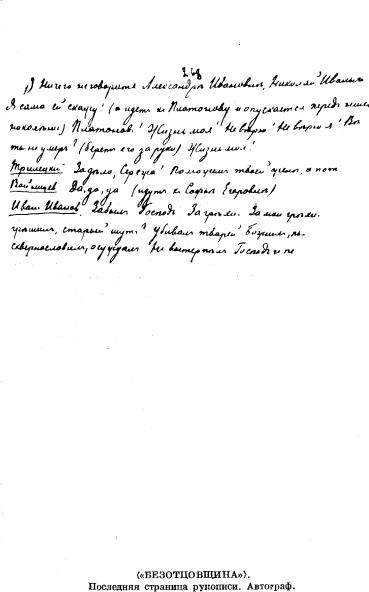 268
Ничего не говорите Александре Ивановне, Николай Иваныч!
Я сама ей скажу! (а идет к Платонову и опускается перед ним на
колени) Платонов! Жизнь моя! Не верю! Не верю я! Ведь
ты не умер? (берет его за руку) Жизнь моя!
Трилецкий За дело, Сережа! Поможем твоей жене, а пот
Войницев Да, да, да (идут к Софье Егоровне)
Иван Иваныч. Забыл Господь За грехи. За мои грехи.
грешил, старый шут? Убивал тварей Божиих, пь
сквернословил, осуждал Не вытерпел Господь и по
(«БЕЗОТЦОВЩИНА»).
Последняя страница рукописи. Автограф.